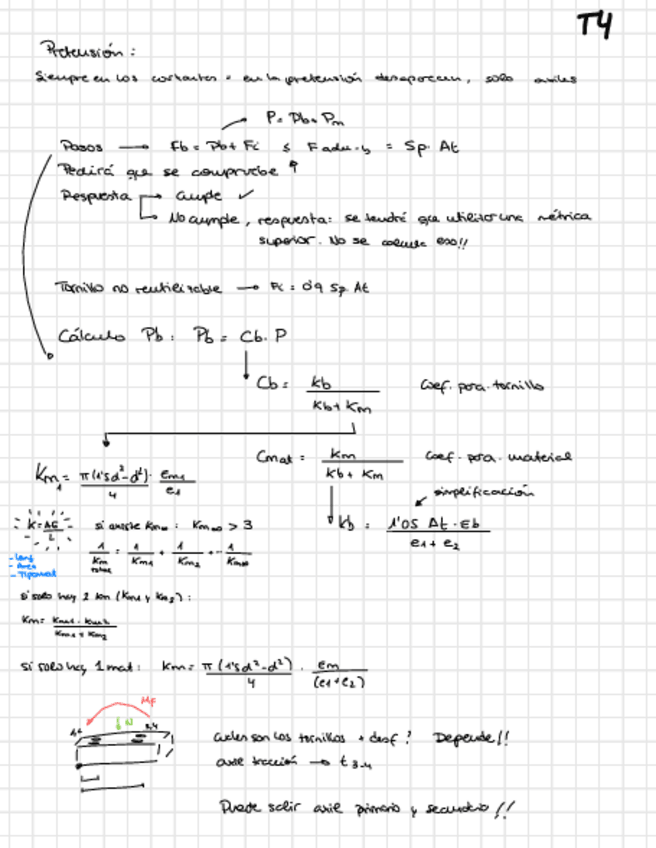 T4
Pretensión :
Siempre en los cortantes = en la pretensión desaparecen, solo axiles
P = Pb + Pm
Pasos → Fb = Pb + Fi ≤ F adm. b = Sp. At
Pedirá que se compruebe
Respuesta → Cumple ✓
→ No cumple, respuesta: se tendrá que utilizar una métrica
superior. No se calcula eso!!
Tornillo no reutilizable → Fi = 0'9 Sp At
Cálculo Pb : Pb = Cb. P
Cb = kb / (kb + Km) Coef. para tornillo
Cmat = Km / (kb + Km) Coef. para material
Km1 = π(1'5d²-d²) / 4 · Em1 / e1
simplificación
kb = 1'05 At · Eb / (e1 + e2)
K = AE / L
- Long
- Area
- Tipomat
si existe Km∞ : Km∞ > 3
1 / Km = 1 / Km1 + 1 / Km2 + ... 1 / Km∞
si solo hay 2 (Km1 y Km2) :
Km = Km1 · Km2 / (Km1 + Km2)
si solo hay 1 mat : Km = π (1'5d²-d²) / 4 · Em / (e1+e2)
MF
N
3,4
cuales son los tornillos + desf ? Depende!!
axil tracción → t 3-4
Puede salir axil primario y secundario !!